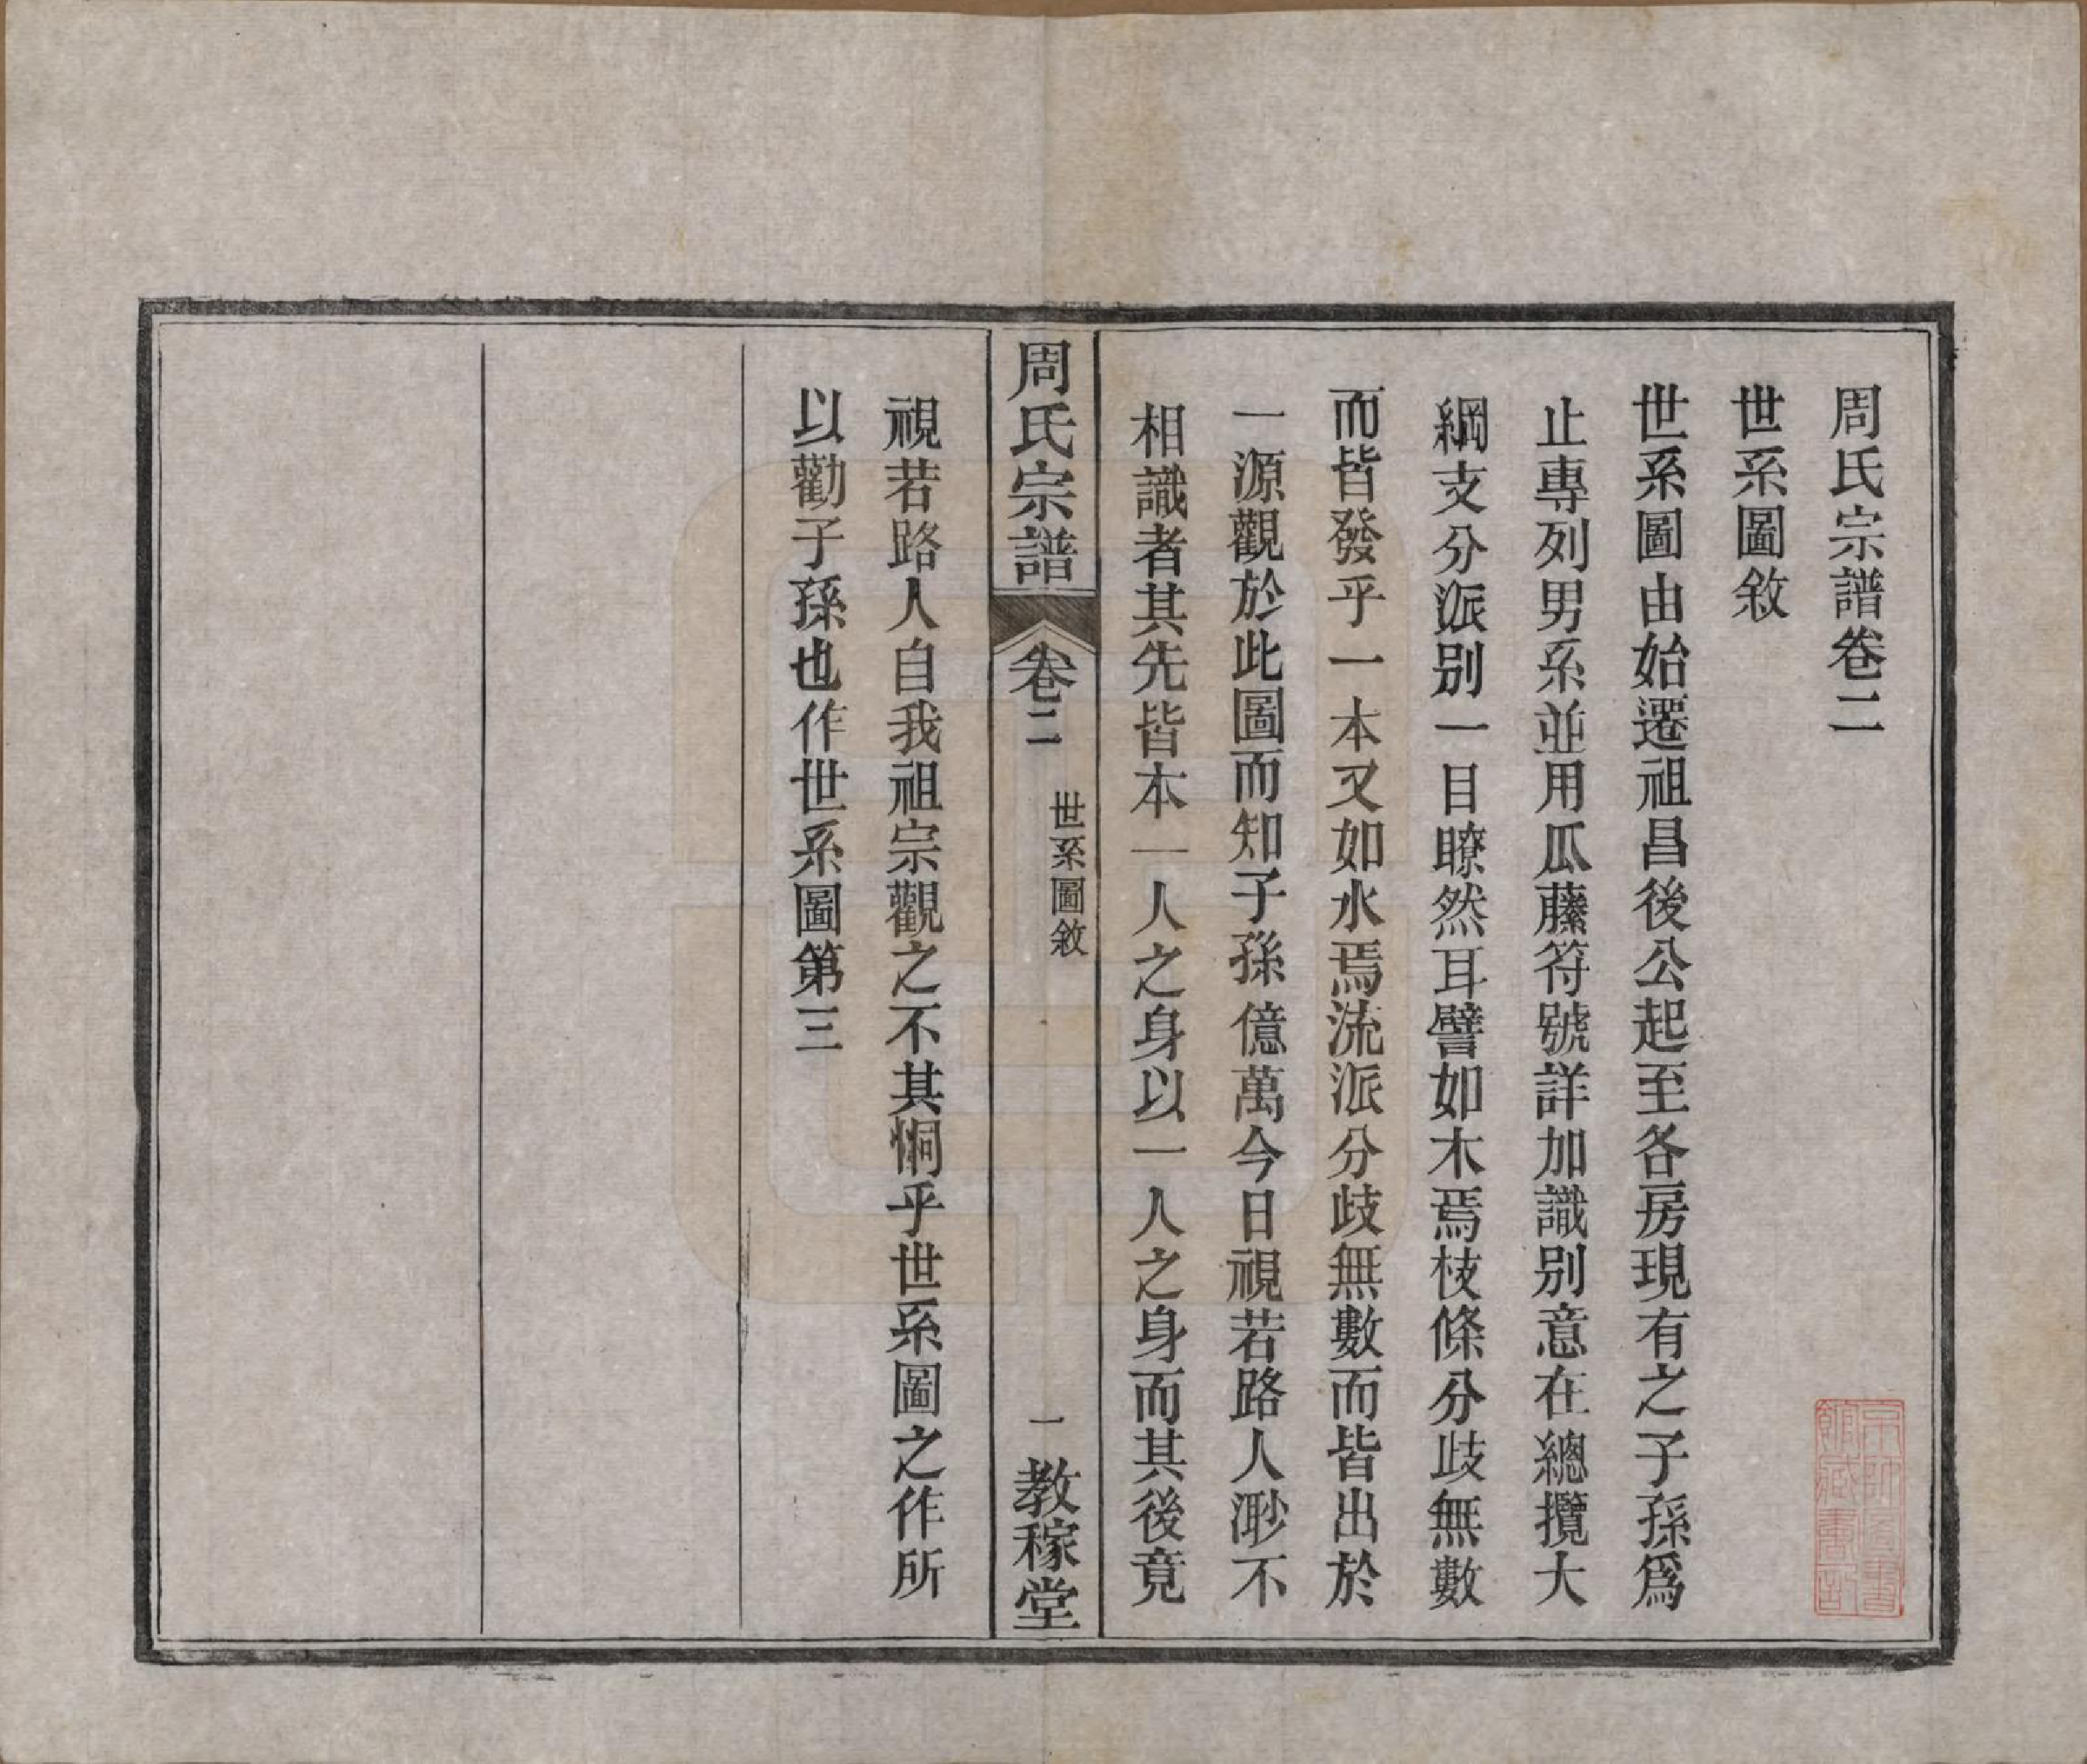 周氏宗譜卷二
世系圖敘
世系圖由始遷祖昌後公起至各房現有之子孫爲
止專列男系並用瓜藤符號詳加識別意在總攬大
綱支分派別一目瞭然耳譬如木焉枝條分歧無數
而皆發乎一本又如水焉流派分歧無數而皆出於
一源觀於此圖而知子孫億萬今日視若路人渺不
相識者其先皆本一人之身以一人之身而其後竟
周氏宗譜 卷二 世系圖敘 一 教稼堂
視若路人自我祖宗觀之不其恫乎世系圖之作所
以勸子孫也作世系圖第三